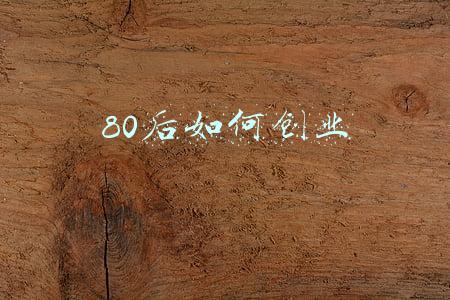 80后如何创业